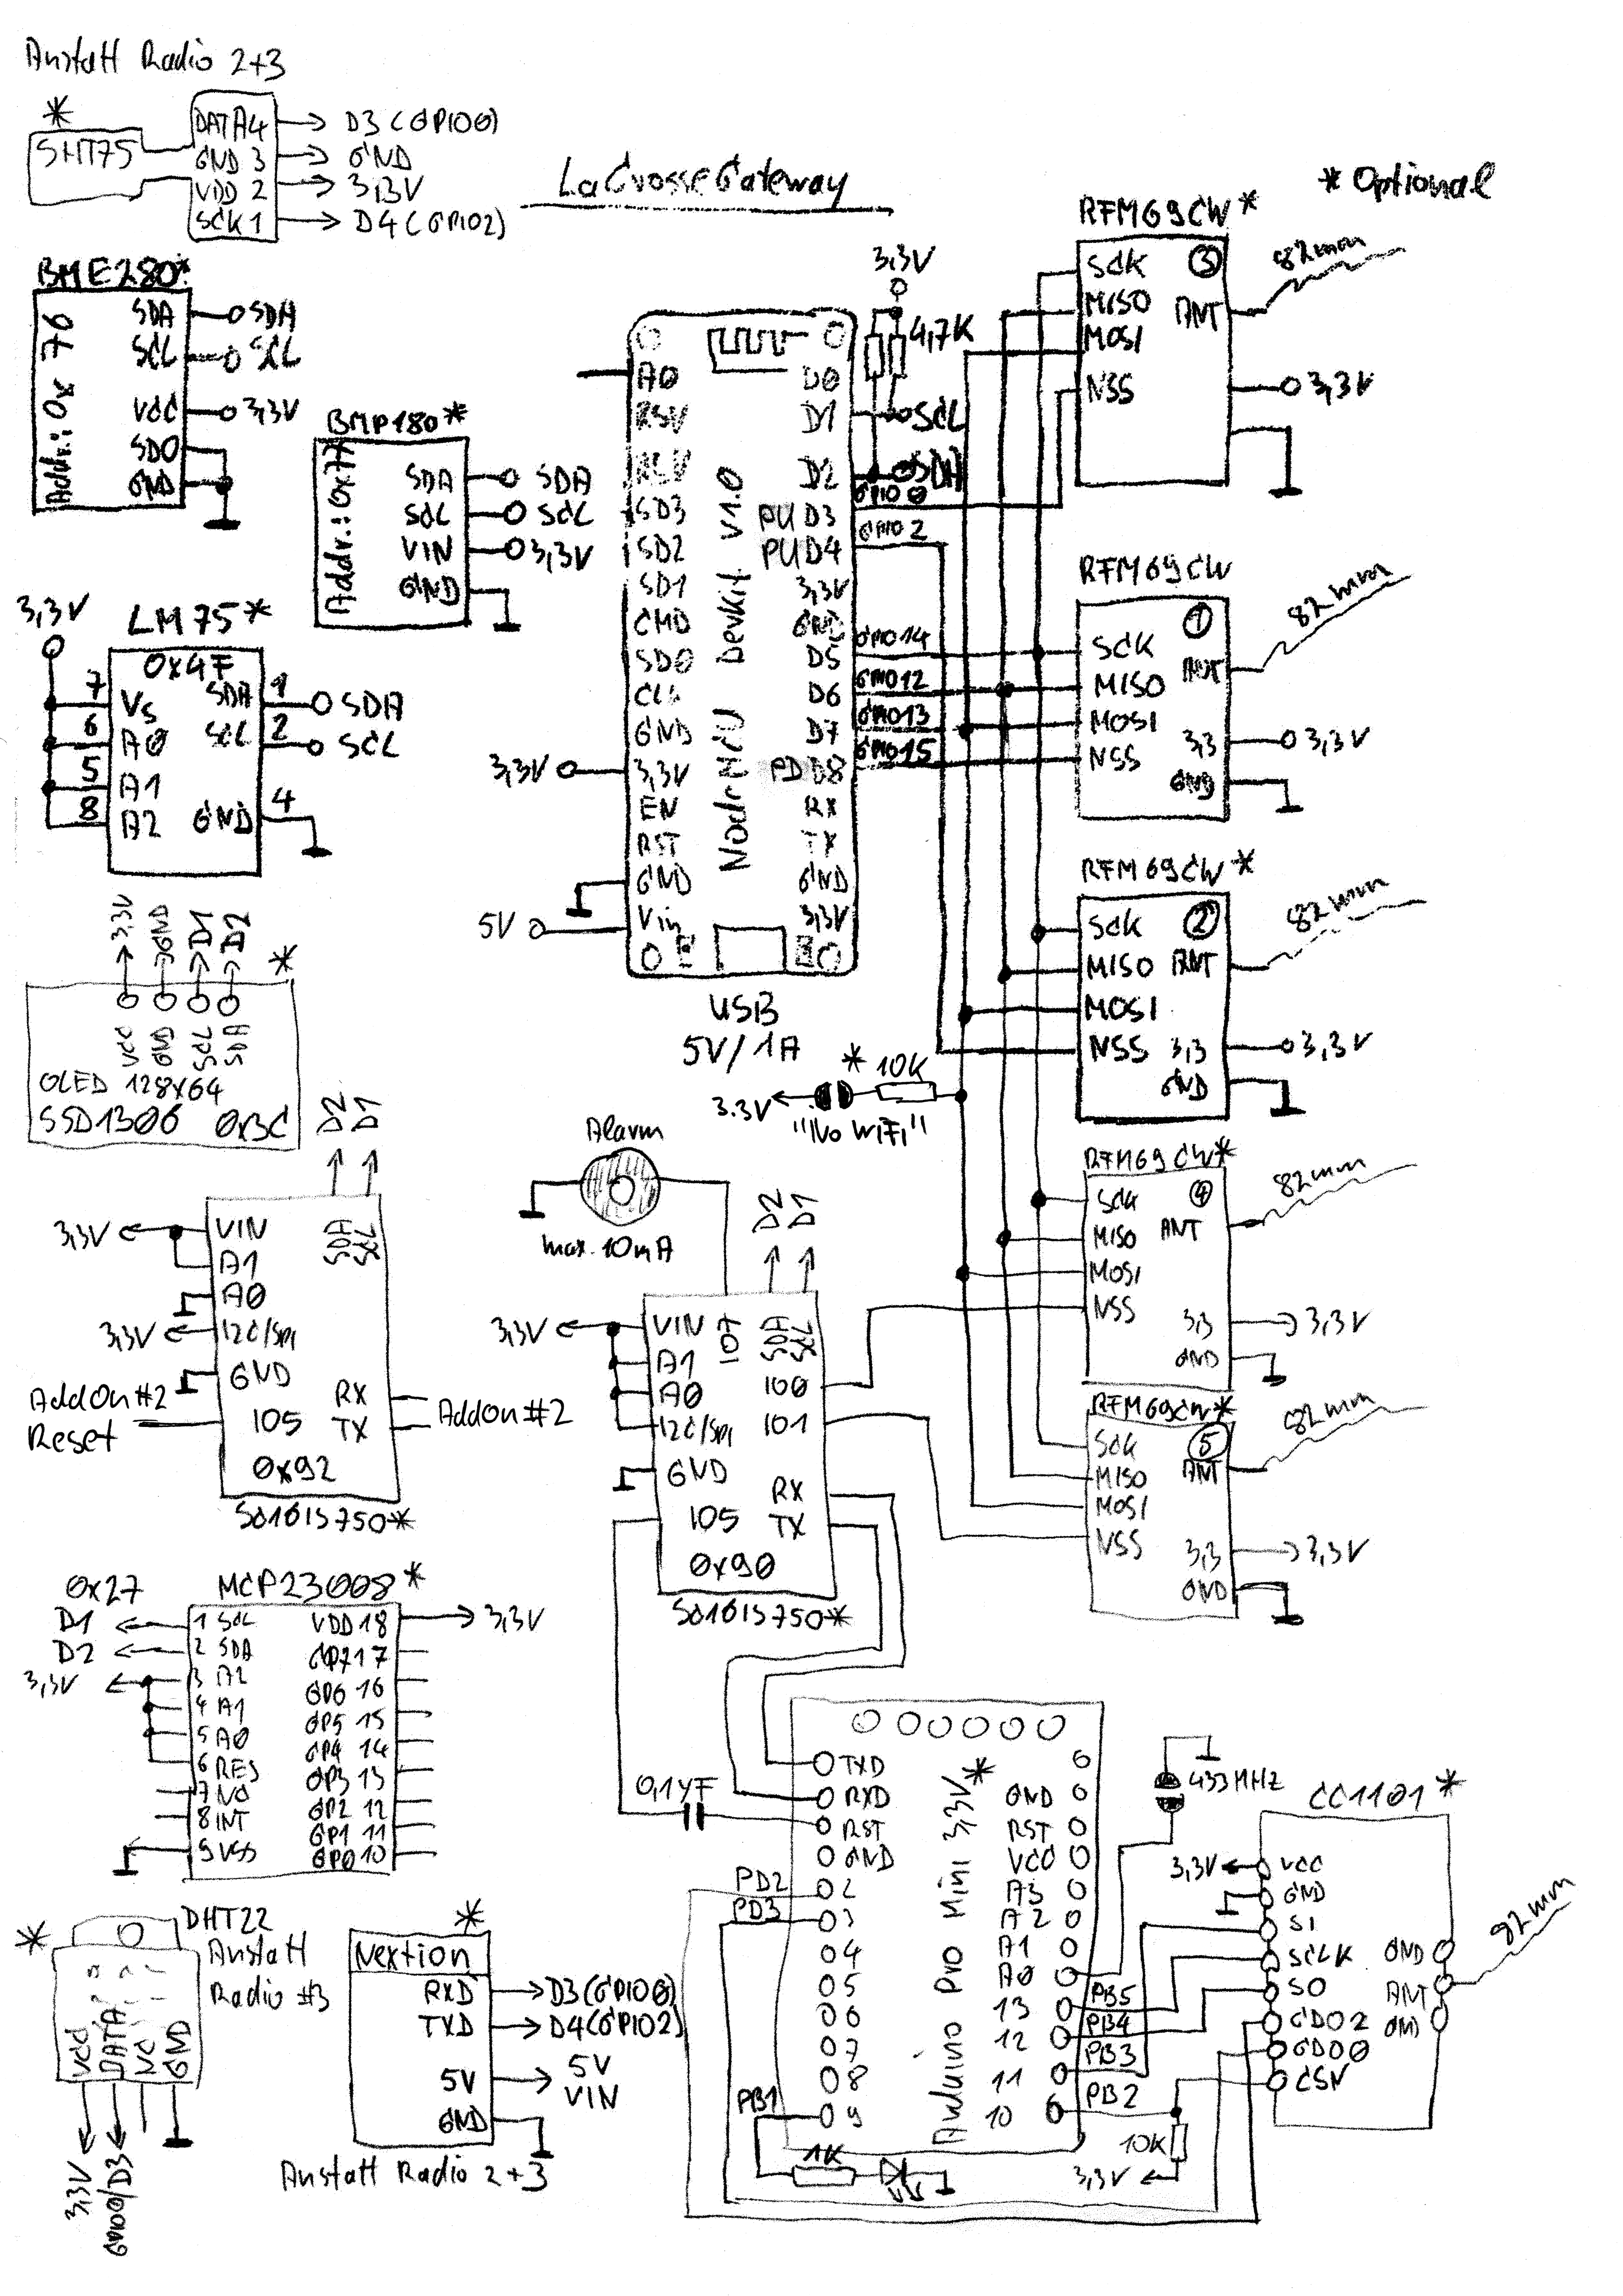 Anstatt Radio 2+3
*
SHT75
DATA 4
GND 3
VDD 2
SCK 1
D3 (GPIO0)
GND
3,3V
D4 (GPIO2)
LaCrosseGateway
* Optional
BME280*
Addr.: 0x76
SDA
SCL
VCC
SDO
GND
SDA
SCL
3,3V
BMP180*
Addr.: 0x77
SDA
SCL
VIN
GND
SDA
SCL
3,3V
LM75*
3,3V
0x4F
7 Vs
6 A0
5 A1
8 A2
SDA 1
SCL 2
GND 4
SDA
SCL
3.3V
GND
D1
D2
*
VCC
GND
SCL
SDA
OLED 128x64
SSD1306 0x3C
NodeMCU DevKit V1.0
A0
RSV
RSV
SD3
SD2
SD1
CMD
SD0
CLK
GND
3,3V
EN
RST
GND
Vin
D0
D1
D2
PU D3
PU D4
3,3V
GND
D5
D6
D7
PD D8
RX
TX
GND
3,3V
3,3V
5V
3,3V
4,7K
SCL
SDA
GPIO 0
GPIO 2
GPIO14
GPIO12
GPIO13
GPIO15
USB
5V/1A
* 10K
3.3V
"No WiFi"
RFM69CW*
SCK 3
MISO
MOSI
NSS
ANT
82mm
3,3V
RFM69CW
1
SCK
MISO
MOSI
NSS
ANT
3,3
GND
82mm
3,3V
RFM69CW*
SCK 2
MISO ANT
MOSI
NSS 3,3
GND
82mm
3,3V
RFM69CW*
SCK 4
MISO
MOSI
NSS
ANT
3,3
GND
82mm
3,3V
RFM69CW*
SCK 5
MISO ANT
MOSI
NSS
3,3
GND
82mm
3,3V
D2
D1
3,3V
VIN
A1
A0
3,3V
I2C/SPI
GND
SDA
SCL
RX
TX
IO5
0x92
AddOn #2
Reset
AddOn #2
SC16IS750*
Alarm
max. 10mA
D2
D1
3,3V
VIN
A1
A0
I2C/SPI
GND
IO7
SDA
SCL
IO0
IO1
RX
TX
IO5
0x90
SC16IS750*
0x27
MCP23008*
D1
D2
3,3V
1 SCL
2 SDA
3 A2
4 A1
5 A0
6 RES
7 NC
8 INT
9 VSS
VDD 18
GP7 17
GP6 16
GP5 15
GP4 14
GP3 13
GP2 12
GP1 11
GP0 10
3,3V
*
DHT22
Anstatt
Radio #3
VCC
DATA
NC
GND
3,3V
GPIO0/D3
*
Nextion
RXD
TXD
5V
GND
D3(GPIO0)
D4(GPIO2)
5V
VIN
Anstatt Radio 2+3
0,1µF
Arduino Pro Mini 3,3V *
TXD
RXD
RST
GND
2
3
4
5
6
7
8
9
GND
RST
VCC
A3
A2
A1
A0
13
12
11
10
PD2
PD3
PB1
PB5
PB4
PB3
PB2
1K
10K
3,3V
433MHZ
CC1101*
3,3V
VCC
GND
SI
SCLK
SO
GDO2
GDO0
CSN
GND
ANT
GND
92mm